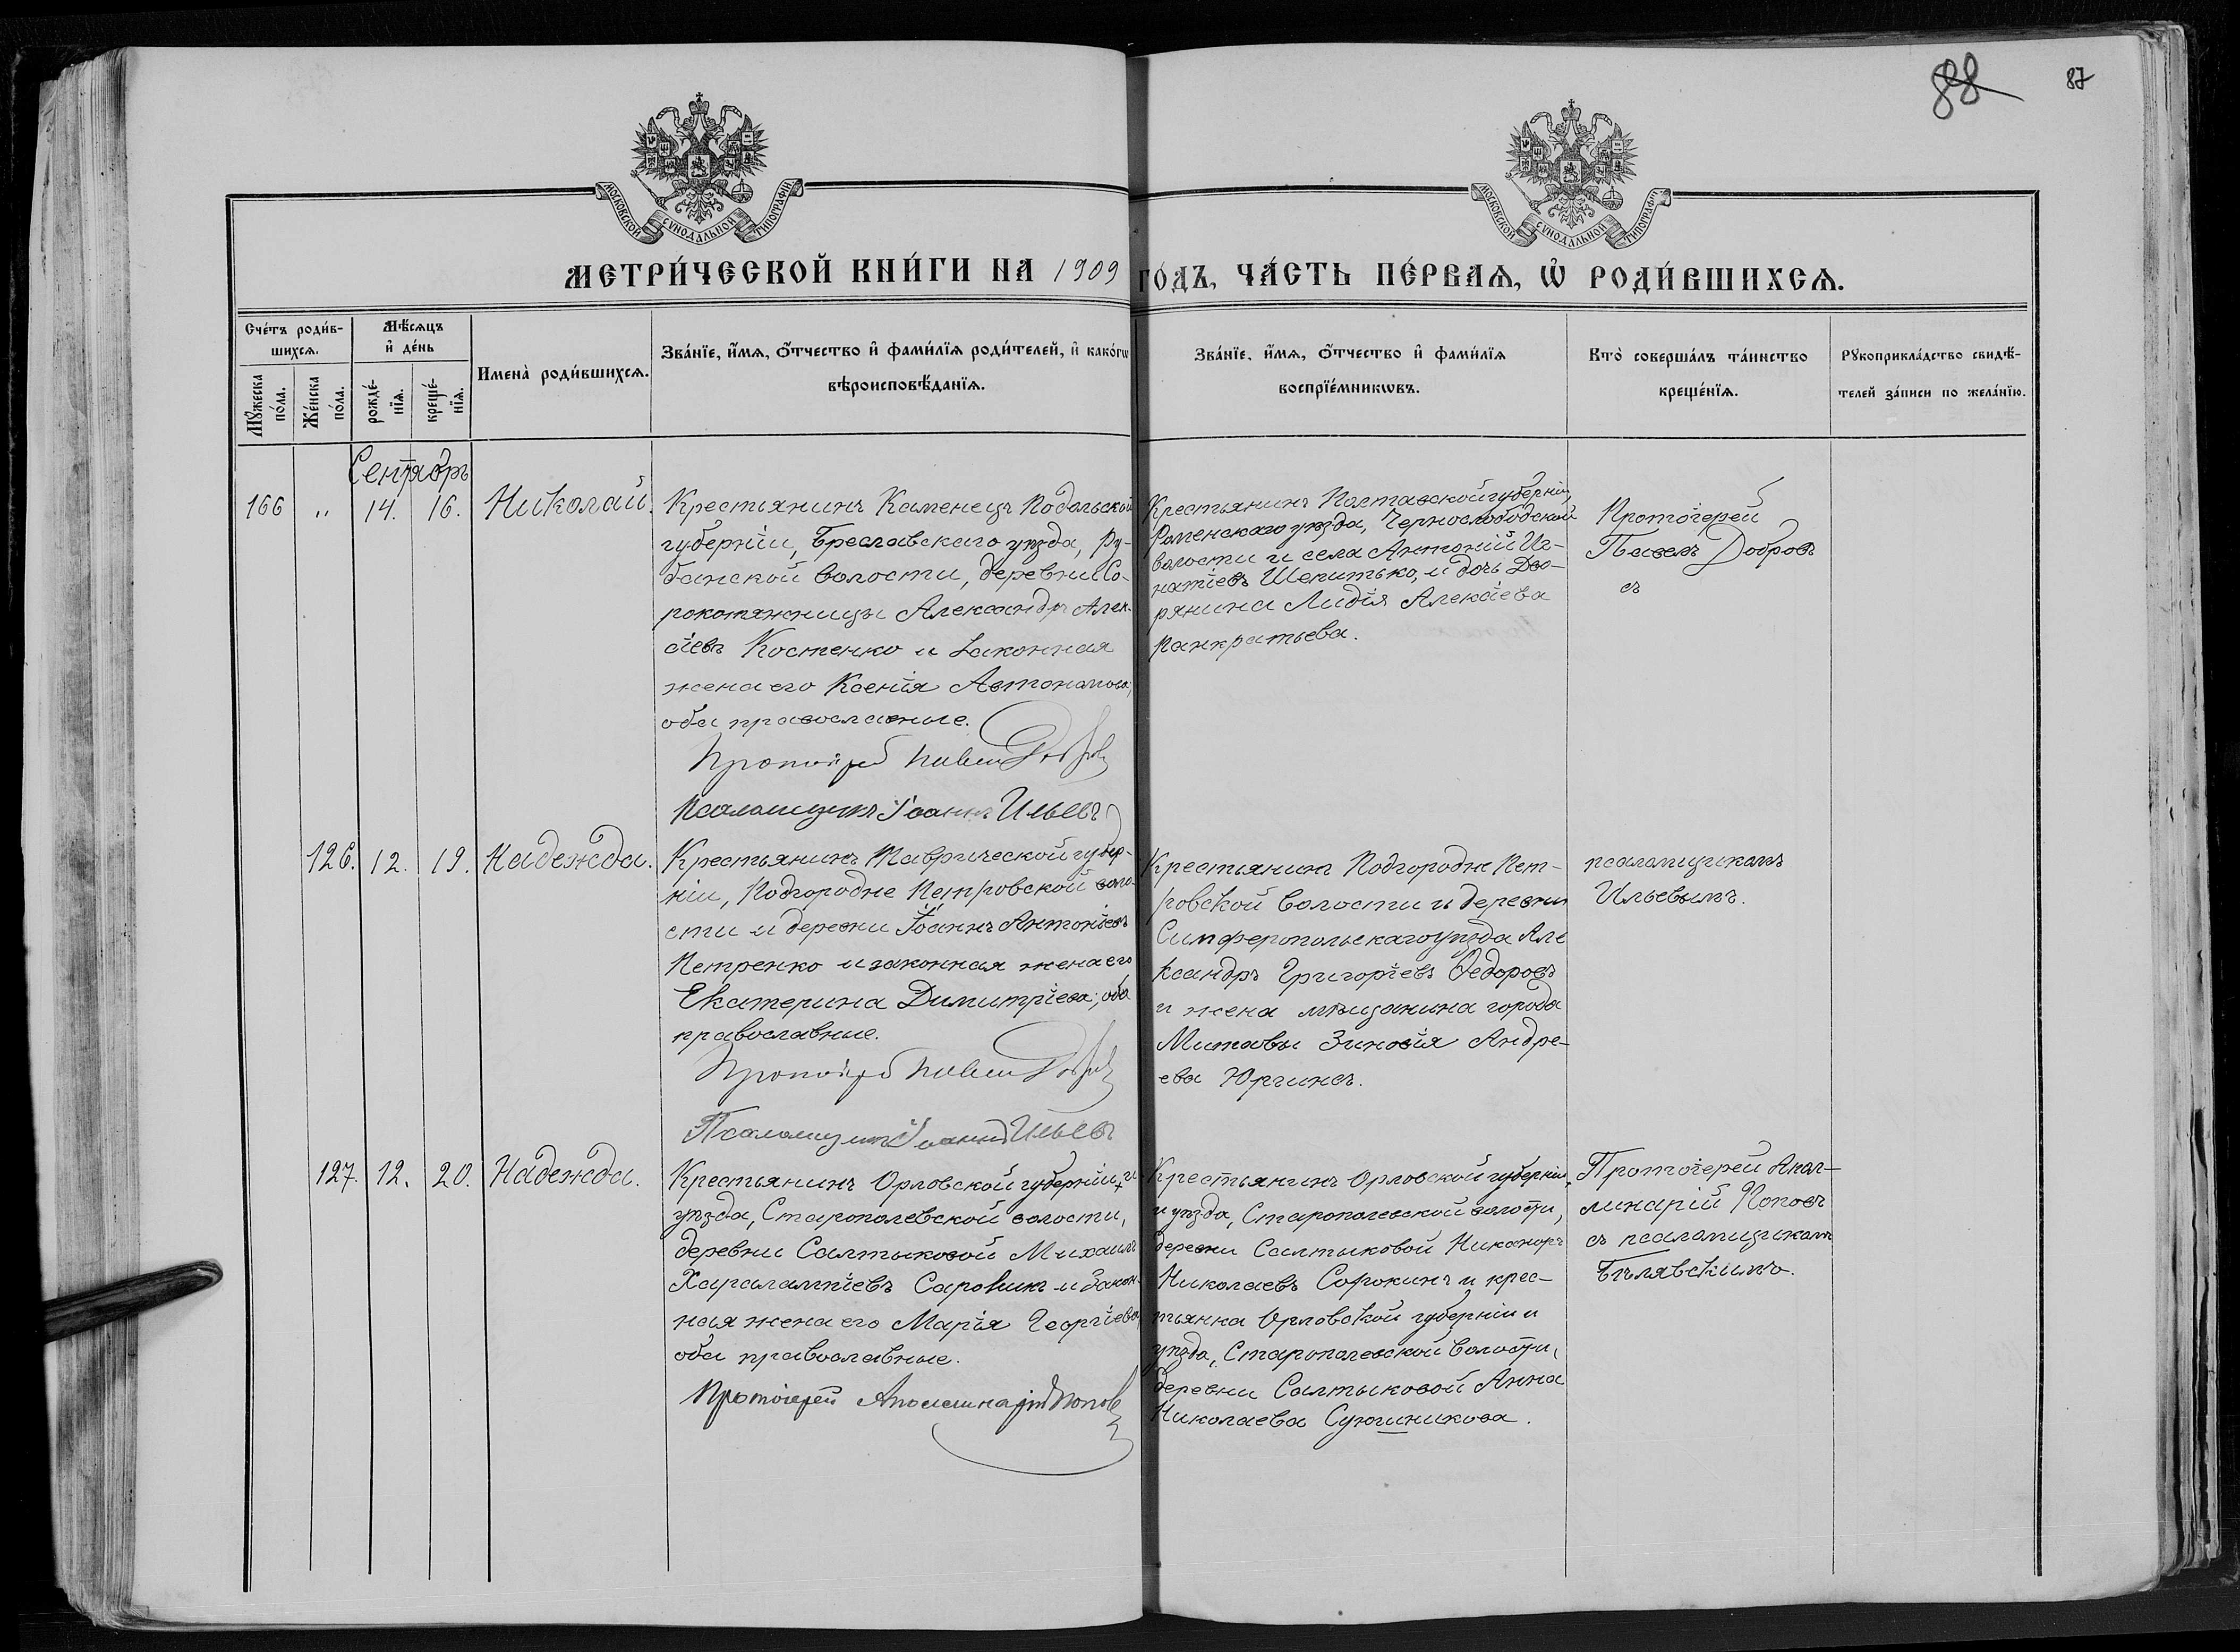 88
87
МОСКОВСКОЙ СѴНОДАЛЬНОЙ ТИПОГРАФІИ
МОСКОВСКОЙ СѴНОДАЛЬНОЙ ТИПОГРАФІИ
МЕТРИ́ЧЕСКОЙ КНИ́ГИ НА 1909 ГО́ДЪ, ЧА́СТЬ ПЕ́РВАѦ, Ѡ҆ РОДИ́ВШИХСѦ.
Сче́тъ роди́в-
шихсѧ.
Мꙋ́жеска
по́ла.
Же́нска
по́ла.
Мѣ́сѧцъ
и҆ де́нь
рожде́-
нїѧ.
креще́-
нїѧ.
Имена̀ роди́вшихсѧ.
Зва́нїе, и҆́мѧ, ѻ҆́тчество и҆ фами́лїѧ роди́телей, и҆ како́гѡ
вѣроисповѣ́данїѧ.
Зва́нїе, и҆́мѧ, ѻ҆́тчество и҆ фами́лїѧ
воспрїе́мникѡвъ.
Кто̀ соверша́лъ та́инство
креще́нїѧ.
Рꙋкоприкла́дство свидѣ́-
телей за́писи по жела́нїю.
Сентябрь
166 " 14. 16. Николай.
Крестьянинъ Каменецъ Подольской
губерніи, Бреславскаго уѣзда, Ру-
банской волости, деревни Со-
рокотяжницы Александръ Алек-
сіевъ Костенко и законная
жена его Ксенія Автономова;
оба православные.
Протоіерей Павелъ Добровъ
Псаломщикъ Іоаннъ Ильевъ
Крестьянинъ Полтавской губерніи,
Роменскаго уѣзда, Чернослободской
волости и села Антоній Иг-
натіевъ Шепитько, и дочь Дво-
рянина Лидія Алексіева
Панкратьева.
Протоіерей
Павелъ Добровъ
съ
126. 12. 19. Надежда.
Крестьянинъ Таврической губер-
ніи, Подгородне Петровской воло-
сти и деревни Іоаннъ Антоніевъ
Петренко и законная жена его
Екатерина Димитріева; оба
православные.
Протоіерей Павелъ Добровъ
Псаломщикъ Іоаннъ Ильевъ
Крестьянинъ Подгородне Пет-
ровской волости и деревни
Симферопольскаго уѣзда Але
ксандръ Григоріевъ Ѳедоровъ
и жена мѣщанина города
Митавы Зиновія Андре-
ева Юргинсъ.
псаломщикомъ
Ильевымъ.
127. 12. 20. Надежда.
Крестьянинъ Орловской губерніи и
уѣзда, Старополевской волости,
деревни Салтыковой Михаилъ
Харалампіевъ и закон-
ная жена его Марія Георгіева
оба православные.
Протоіерей Аполлинарій Поповъ
Крестьянинъ Орловской губерніи
и уѣзда, Старополевской волости,
деревни Салтыковой Никаноръ
Николаевъ Сорокинъ и крес-
тьянка Орловской губерніи и
уѣзда, Старополевской волости,
деревни Салтыковой Анна
Николаева
Протоіерей Апол-
линарій Поповъ
съ псаломщикомъ
Бѣлявскимъ.